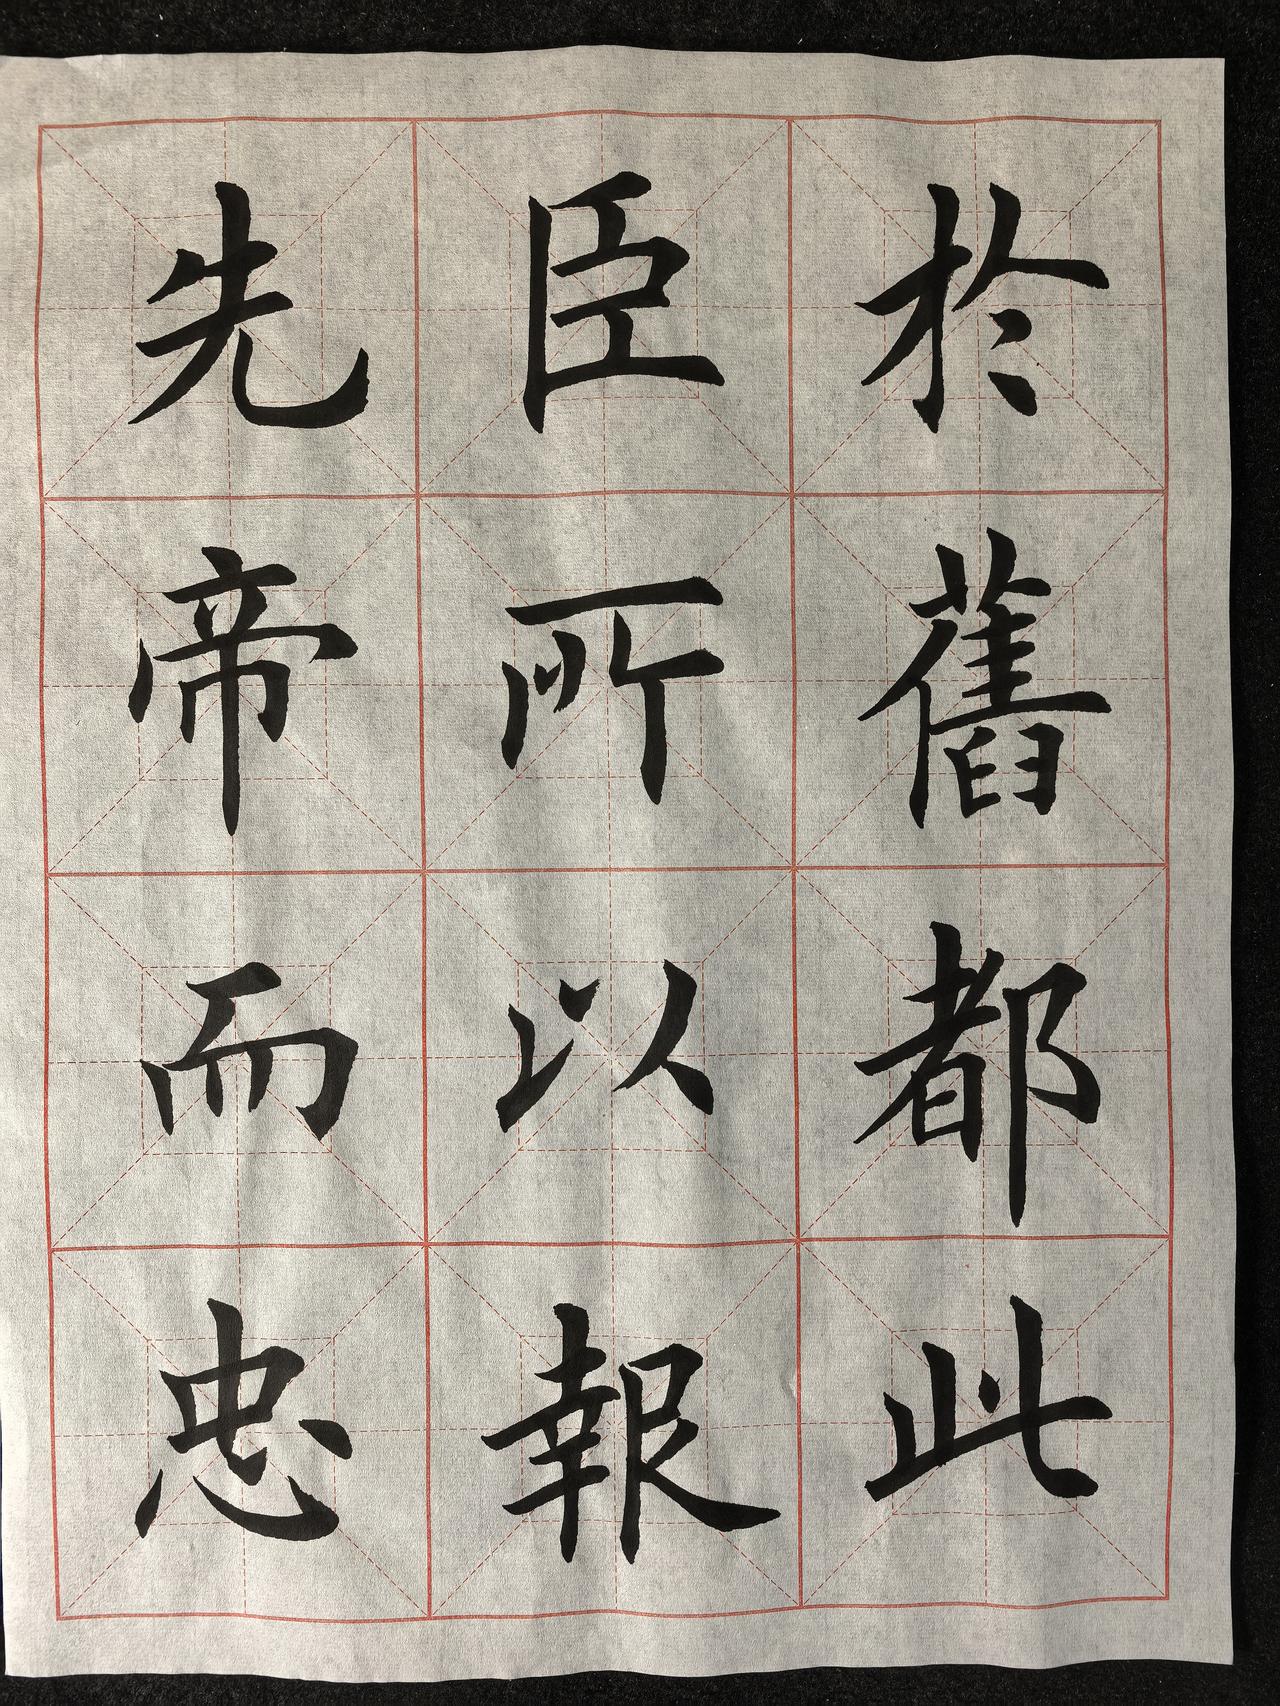 於舊都此
臣所以報
先帝而忠